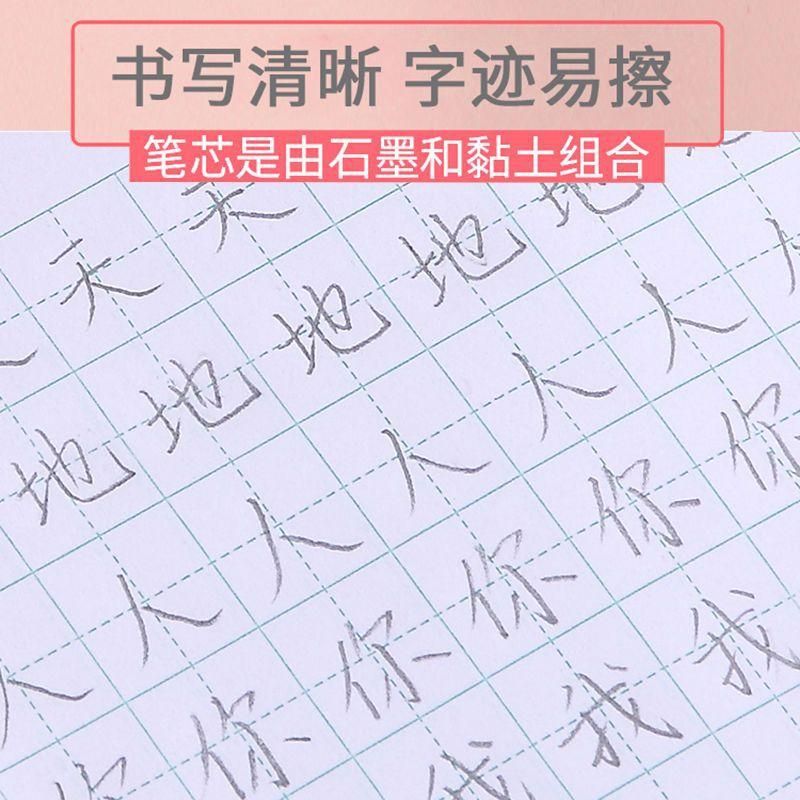 书写清晰 字迹易擦
笔芯是由石墨和黏土组合
天 天
地 地 地 地 地
人 人 人 人 人 人
你 你 你 你 你 你
我 我 我